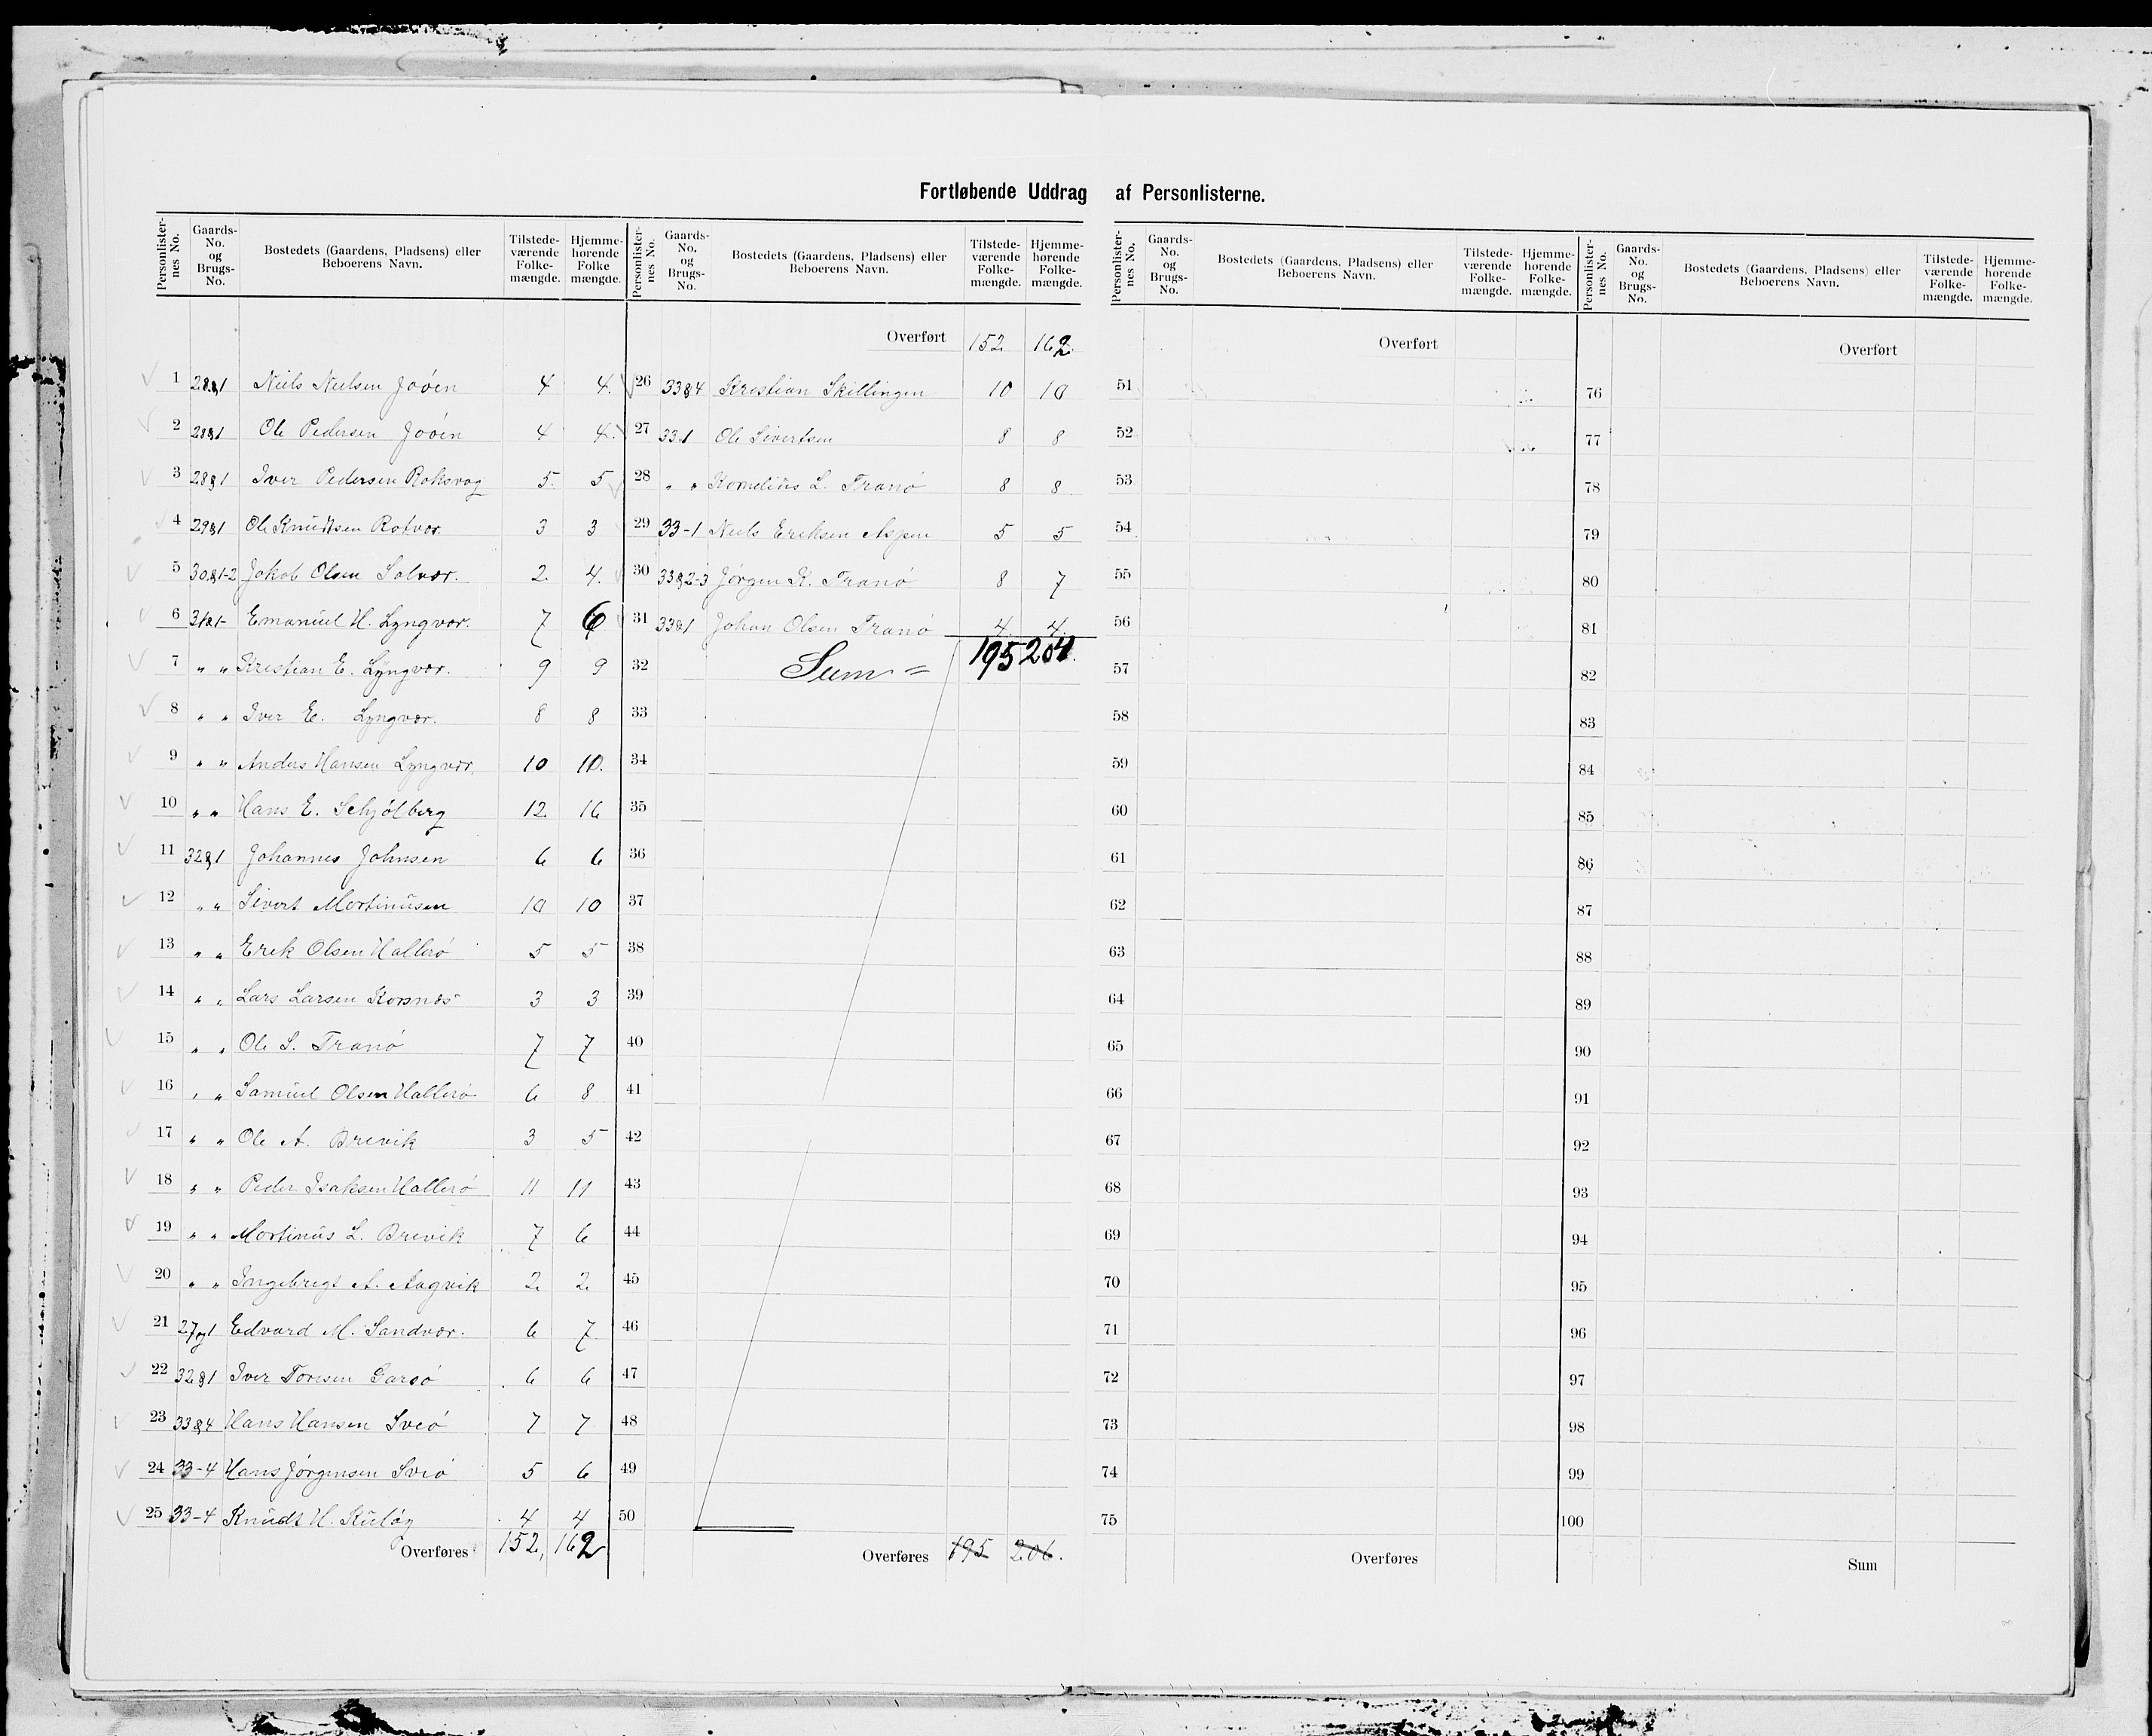 Fortløbende Uddrag af Personlisterne.
Personlisternes No. Gaards-No. og Brugs-No. Bostedets (Gaardens, Pladsens) eller Beboerens Navn. Tilstedeværende Folkemængde. Hjemmehørende Folkemængde.
1 28&1 Niels Nielsen Joöen 4 4.
2 28&1 Ole Pedersen Joöen 4 4.
3 28&1 Iver Pedersen Roksvag 5. 5
4 29&1 Ole Knudtsen Rotvær. 3 3
5 30&1-2 Jakob Olsen Solvær. 2. 4.
6 31&1- Emanuel H. Lyngvær. 7 6
7 " " Kristian E. Lyngvær. 9 9
8 " " Iver E. Lyngvær. 8 8
9 " " Anders Hansen Lyngvær. 10 10.
10 " " Hans E. Schjölberg 12. 16
11 32&1 Johannes Johnsen 6 6
12 " " Sivert Mortinusen 10 10
13 " " Erik Olsen Hallerö 5 5
14 " " Lars Larsen Korsnes 3 3
15 " " Ole S. Tranö 7 7
16 " " Samuel Olsen Hallerö 6 8
17 " " Ole A. Brevik 3 5
18 " " Peder Isaksen Hallerö 11 11
19 " " Mortinus L. Brevik 7 6
20 " " Ingebrigt A. Aagvik 2. 2.
21 27og1 Edvard M. Sandvær. 6 7
22 32&1 Iver Toresen Garsö 6 6
23 33&4 Hans Hansen Sveö 7 7
24 33-4 Hans Jörgensen Sveö 5 6
25 33-4 Knudt H. Kulöy 4 4
Overføres 152, 162
Personlisternes No. Gaards-No. og Brugs-No. Bostedets (Gaardens, Pladsens) eller Beboerens Navn. Tilstedeværende Folkemængde. Hjemmehørende Folkemængde.
Overført 152 162.
26 33&4 Kristian Skillingen 10 10
27 33.1 Ole Sivertsen 8 8
28 " " Kornelius L. Tranö 8 8
29 33-1 Niels Eriksen Aspen 5 5
30 33&2-3 Jörgen K. Tranö 8 7
31 33&1 Johan Olsen Tranö 4. 4.
32 Sum = 195 204.
33
34
35
36
37
38
39
40
41
42
43
44
45
46
47
48
49
50
Overføres 195 206.
Personlisternes No. Gaards-No. og Brugs-No. Bostedets (Gaardens, Pladsens) eller Beboerens Navn. Tilstedeværende Folkemængde. Hjemmehørende Folkemængde.
Overført
51
52
53
54
55
56
57
58
59
60
61
62
63
64
65
66
67
68
69
70
71
72
73
74
75
Overføres
Personlisternes No. Gaards-No. og Brugs-No. Bostedets (Gaardens, Pladsens) eller Beboerens Navn. Tilstedeværende Folkemængde. Hjemmehørende Folkemængde.
Overført
76
77
78
79
80
81
82
83
84
85
86
87
88
89
90
91
92
93
94
95
96
97
98
99
100
Sum